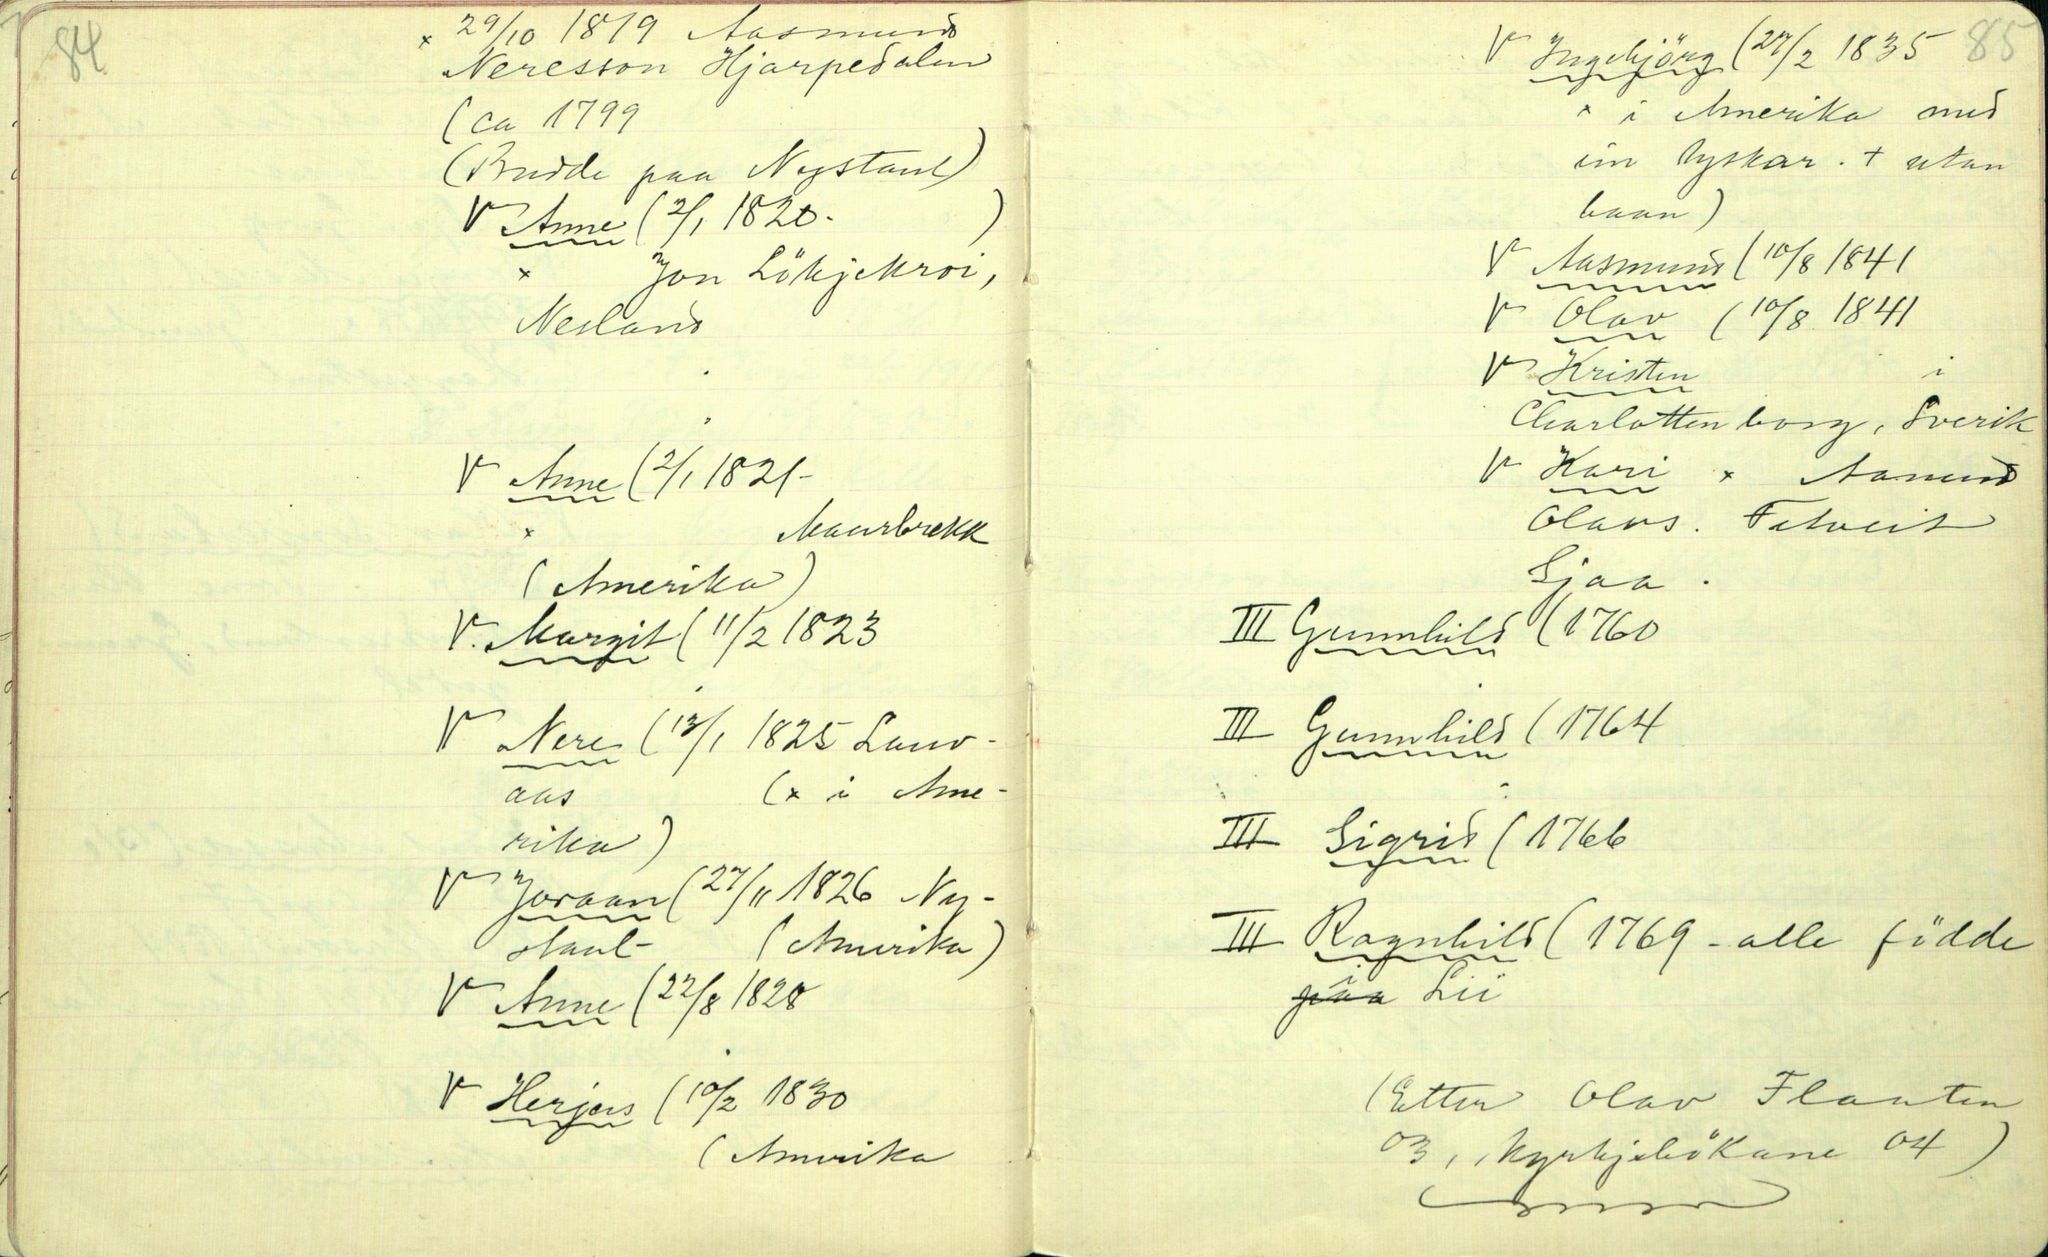 84
× 29/10 1819 Aasmund
Neresson Hjarpedalen
(ca 1799
(Budde paa Nystaul)
V Anne (2/1 1820. )
× Jon Lökjekroi,
Nesland
V Anne (2/1 1821-
× Maurbrekk
(Amerika)
V. Margit (11/2 1823
V Nere (13/1 1825 Lauv-
aas (× i Ame-
rika)
V Joraan (27/11 1826 Ny-
staul- (Amerika)
V Anne (22/8 1828
V Herjus (10/2 1830
(Amerika
85
V Ingebjörg (27/2 1835
× i Amerika med
ein tyskar. + utan
baan)
V Aasmund (10/8 1841
V Olav (10/8 1841
V Kristen i
Charlottenborg, Sverik
V Kari × Aamund
Olavs. Fetveit
Sjaa.
III Gunnhild (1760
III Gunnhild (1764
III Sigrid (1766
III Ragnhild (1769 - alle födde
paa i Lii
(Etter Olav Flaaten
03, kyrkjebökane 04)